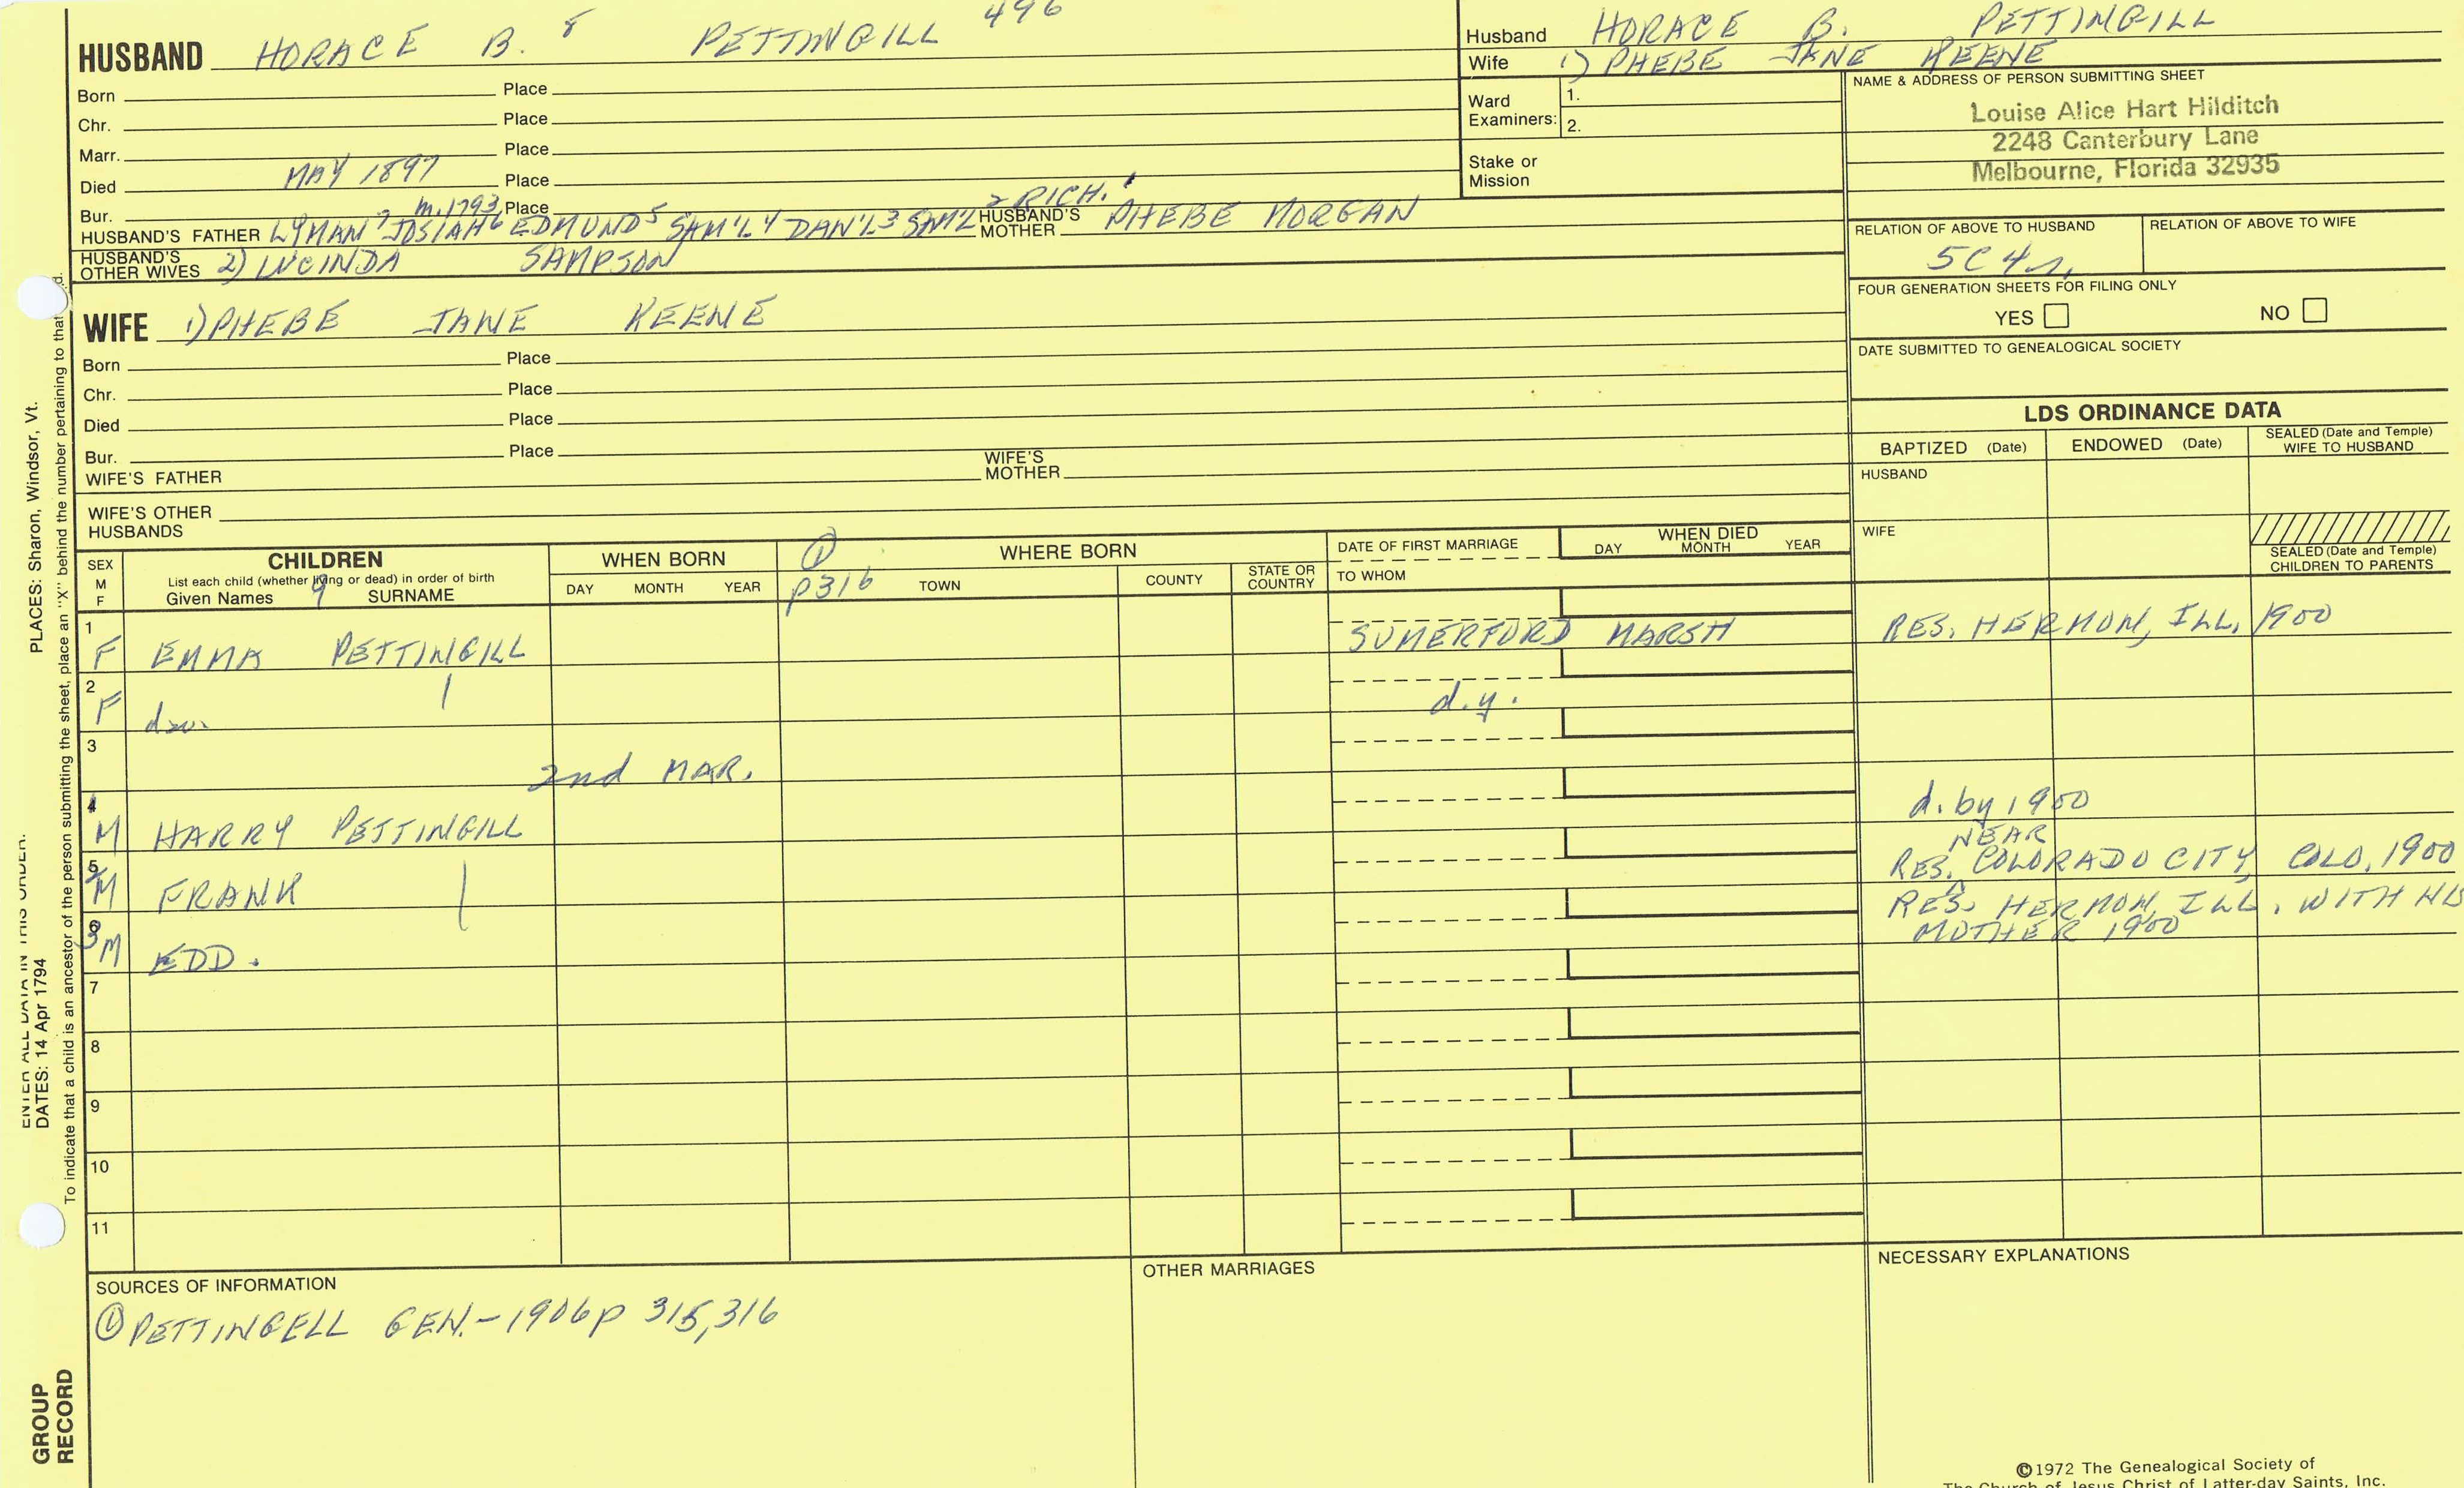 HUSBAND HORACE B. 8 PETTINGILL 496
Born Place
Chr. Place
Marr. Place
Died MAY 1897 Place
Bur. m. 1793 Place 2 RICH. 1
HUSBAND'S FATHER LYMAN 7 JOSIAH 6 EDMUND 5 SAM'L 4 DAN'L 3 SAM'L HUSBAND'S MOTHER PHEBE MORGAN
HUSBAND'S OTHER WIVES 2) LUCINDA SAMPSON
WIFE 1) PHEBE JANE KEENE
Born Place
Chr. Place
Died Place
Bur. Place
WIFE'S FATHER WIFE'S MOTHER
WIFE'S OTHER HUSBANDS
Husband HORACE B. PETTINGILL
Wife 1) PHEBE JANE KEENE
Ward Examiners: 1.
2.
Stake or Mission
NAME & ADDRESS OF PERSON SUBMITTING SHEET
Louise Alice Hart Hilditch
2248 Canterbury Lane
Melbourne, Florida 32935
RELATION OF ABOVE TO HUSBAND RELATION OF ABOVE TO WIFE
5C4r,
FOUR GENERATION SHEETS FOR FILING ONLY
YES NO
DATE SUBMITTED TO GENEALOGICAL SOCIETY
LDS ORDINANCE DATA
BAPTIZED (Date) ENDOWED (Date) SEALED (Date and Temple) WIFE TO HUSBAND
HUSBAND
WIFE
SEALED (Date and Temple) CHILDREN TO PARENTS
SEX M F
CHILDREN
List each child (whether living or dead) in order of birth
Given Names 9 SURNAME
WHEN BORN
DAY MONTH YEAR
① WHERE BORN
p316 TOWN COUNTY STATE OR COUNTRY
DATE OF FIRST MARRIAGE
TO WHOM
WHEN DIED
DAY MONTH YEAR
1 F EMMA PETTINGILL SUMERFORD MARSH RES. HERMON, ILL. 1900
2 F dau. d.y.
3 2nd MAR.
4 M HARRY PETTINGILL d. by 1900
5 M FRANK RES. NEAR COLORADO CITY, COLO. 1900
6 3 M EDD. RES. HERMON, ILL. WITH
MOTHER 1900
7
8
9
10
11
SOURCES OF INFORMATION
① PETTINGELL GEN.-1906 p 315,316
OTHER MARRIAGES
NECESSARY EXPLANATIONS
©1972 The Genealogical Society of
The Church of Jesus Christ of Latter-day Saints, Inc.
ENTER ALL DATA IN THIS ORDER.
PLACES: Sharon, Windsor, Vt.
DATES: 14 Apr 1794
To indicate that a child is an ancestor of the person submitting the sheet, place an "X" behind the number pertaining to that
GROUP
RECORD